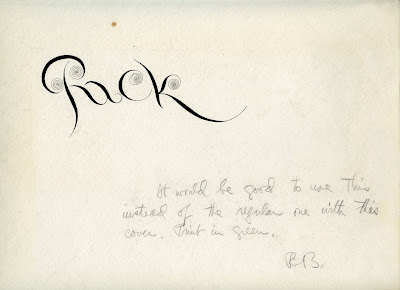 Pack
It would be good to use this
instead of the regular one with this
cover. Print in green.
RB.